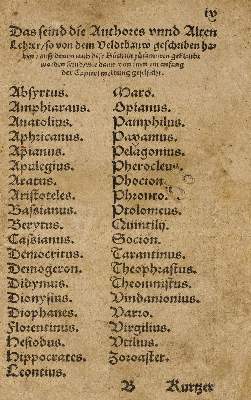 iij
Das seind die Authores vnnd Alten
Lehrer, so von dem Veldtbauw geschriben ha-
ben, auß denen auch dise Bücher zůsamen gebracht
worden seind, wie dann von jnen im anfang
der Capitel meldung geschicht.
Absyrtus.
Amphiaraus.
Anatolius.
Aphricanus.
Apianus.
Apulegius.
Aratus.
Aristoteles.
Bassianus.
Berytus.
Cassianus.
Democritus.
Demogeron.
Didymus.
Dionysius.
Diophanes.
Florentinus.
Hesiodus.
Hippocrates.
Leontius.
Maro.
Opianus.
Pamphilus.
Paxamus.
Pelagonius.
Pherocleus.
Phocion.
Phronto.
Ptolomeus.
Quintilij
Socion.
Tarantinus.
Theophrastus.
Theomnistus.
Vindanionius.
Varro.
Virgilius.
Vtilius.
Zoroaster.
B Kurtzer